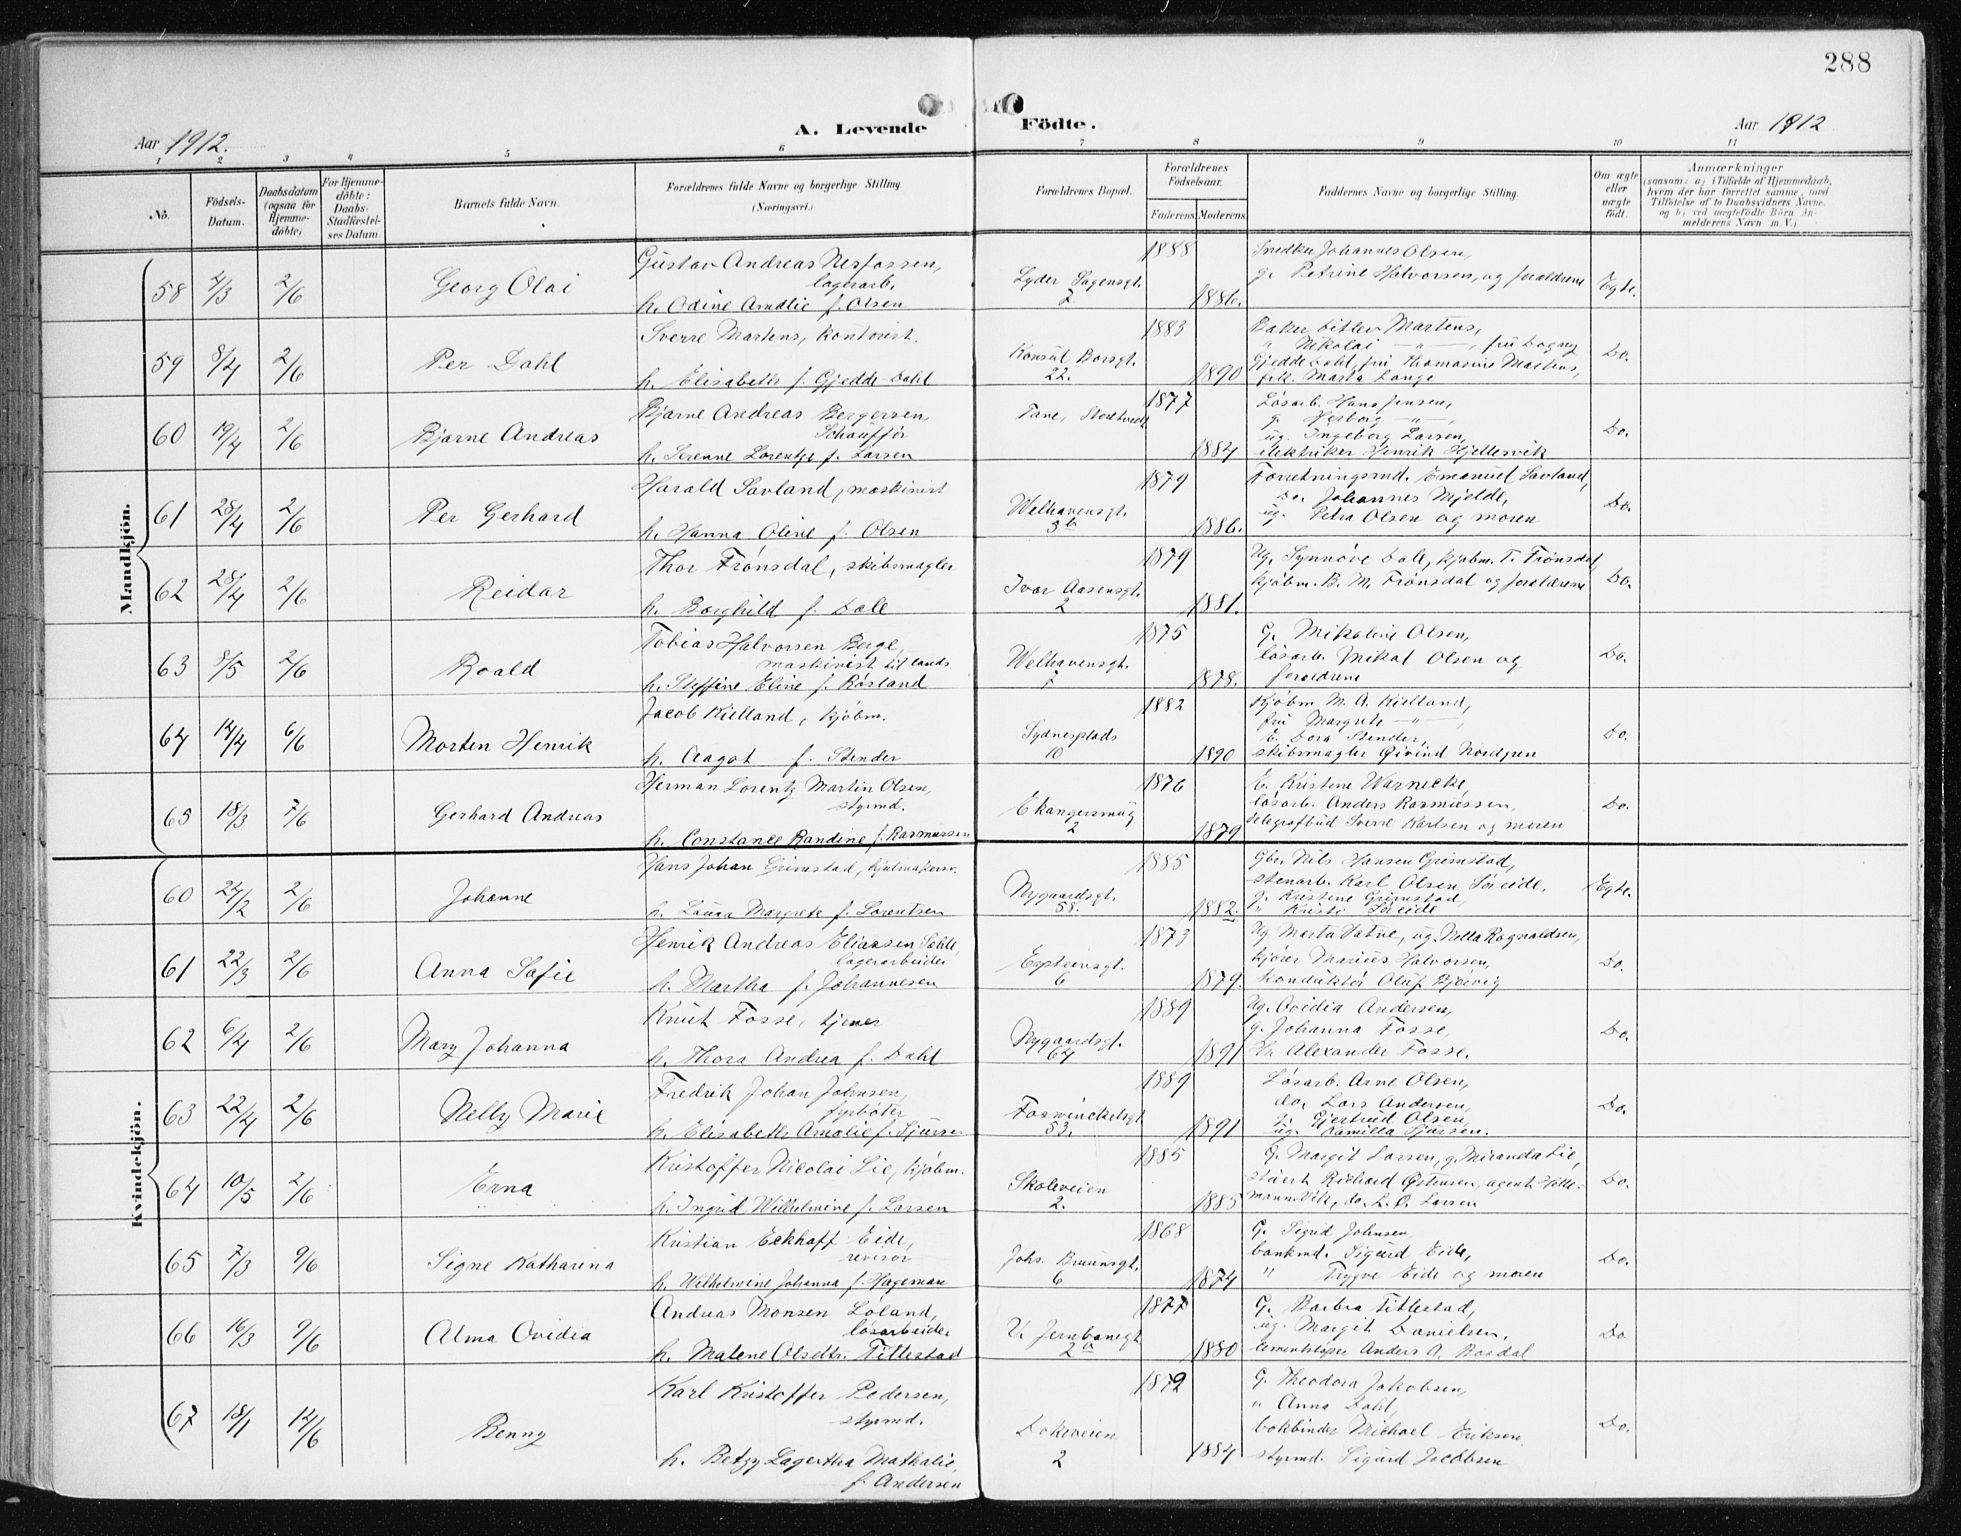 288
Aar 1912.
A. Levende Födte.
Aar 1912
1 2 3 4 5 6 7 8 9 10 11
No.
Födsels-Datum.
Daabsdatum (ogsaa for Hjemmedöbte)
For Hjemmedöbte: Daabs-Stadfæstelses Datum.
Barnets fulde Navn.
Forældrenes fulde Navne og borgerlige Stilling
(Næringsvei.)
Forældrenes Bopæl.
Forældrenes Födselsaar.
Faderens Moderens
Faddernes Navne og borgerlige Stilling.
Om ægte eller uægte födt.
Anmærkninger
(saasom: a) i Tilfælde af Hjemmedaab, hvem der har forrettet samme, med Tilföielse af to Daabsvidners Navne, og b) ved uægtefödte Börn Anmelderens Navn m. V.)
Mandkjön.
58 4/3 2/6 Georg Olai
Gustav Andreas Nesfossen, lagerarb.
h. Odine Amalie f. Olsen
Lyder Sagensgt. 7
1888 1886.
Snedker Johannes Olsen,
g. Petrine Halvorsen, og forældrene
Egte.
59 8/4 2/6 Per Dahl
Sverre Martens, kontorist.
h. Elisabeth f. Gjedde-Dahl
Konsul Børsgt. 22.
1883 1890
Baker Ditlev Martens,
" Nikolai —"—, fru Dagny
Gjedde Dahl, fru Thomasine Martens,
frk. Marta Lange
Do.
60 19/4 2/6 Bjarne Andreas
Bjarne Andreas Bergersen, Schauffør
h. Serenne Lorentze f. Larsen
Tane,
1877 1884
Løsarb. Hans Jensen,
g. Herborg —"—,
ug. Ingeborg Larsen,
elektriker Henrik Hjellesvik
Do.
61 28/4 2/6 Per Gerhard
Harald Savland, maskinist
h. Hanna Oline f. Olsen
Welhavensgt. 5b
1879 1886.
Forretningsmd. Emanuel Savland,
Do. Johannes Mjelde,
ug. Petra Olsen og moren
Do.
62 28/4 2/6 Reidar
Thor Frønsdal, skibsmægler
h. Borghild f. Dale
Ivar Aasensgt. 2
1879 1881.
Ug. Synnøve Dale, kjøbm. T. Frønsdal,
kjøbm. B. M. Frønsdal og forældrene
Do.
63 8/5 2/6 Roald
Tobias Halvorsen Berge, maskinist til lands
h. Steffine Eline f. Røsland
Welhavensgt. 7
1875 1878.
G. Mikaline Olsen,
løsarb. Mikal Olsen og
forældrene
Do.
64 14/4 6/6 Morten Henrik
Jacob Kielland, kjøbm.
h. Aagot f. Stender
Sydnesplads 10
1882 1890
Kjøbm. M. A. Kielland,
fru Margrete —"—,
E. Dora Stender,
skibsmægler Øivind Nordgren
Do.
65 18/3 7/6 Gerhard Andreas
Herman Lorentz Martin Olsen, styrmd.
h. Constance Randine f. Rasmussen
Ekangersmug 2
1876 1879
E. Kristene Warnecke,
løsarb. Anders Rasmussen,
telegrafbud Sverre Karlsen og moren
Do.
Kvindekjön.
60 24/2 2/6 Johanne
Hans Johan Grimstad, hjulmakersv.
h. Laura Margrete f. Lorentsen
Nygaardsgt. 58.
1885 1882.
Gbr. Nils Hansen Grimstad,
stenarb. Karl Olsen Søreide,
g. Kristene Grimstad,
" Kristi Søreide
Egte.
61 22/3 2/6 Anna Sofie
Henrik Andreas Eliassen lagerarbeider
h. Martha f. Johannesen
6
1873 1879.
Ug. Marta Vatne, ug. Nella Rognaldsen,
kjører Marius Halvorsen,
konduktør Oluf Bjørvig
Do.
62 6/4 2/6 Mary Johanna
Knut Fosse, tjener
h. Thora Andrea f. Dahl
Nygaardsgt. 64
1889 1891
Ug. Ovidia Andersen,
g. Johanna Fosse,
Hr. Alexander Fosse.
Do.
63 22/4 2/6 Nelly Marie
Fredrik Johan Johnsen, fyrbøter
h. Elisabeth Amalie f. Sjursen
Foswinckelsgt. 53.
1889 1891
Løsarb. Arne Olsen,
do. Lars Andersen,
g. Gjertrud Olsen,
ug. Kamilla Sjursen.
Do.
64 10/5 2/6 Erna
Kristoffer Nicolai Lie, kjøbm.
h. Ingrid Wilhelmine f. Larsen
Skoleveien 2.
1885 1885
G. Margit Larsen, g. Miranda Lie,
stuert Richard Østensen, agent
Vik, do. L. O. Larsen
Do.
65 7/3 9/6 Signe Katharina
Kristian Eckhoff Eide, revisor
h. Wilhelmine Johanna f. Hageman
Johs. Bruunsgt. 6
1868 1874
G. Sigrid Johnsen,
bankmd. Sigurd Eide,
" Trygve Eide og moren
Do.
66 16/3 9/6 Alma Ovidia
Andreas Monsen Løland, løsarbeider
h. Malene Olsdtr. Tittestad
V. Jernbanegt. 2a
1877 1880
G. Barbra Tittestad,
ug. Margit Danielsen,
cementstøper Anders A. Rosdal
Do
67 18/1 12/6 Benny
Karl Kristoffer Pedersen, styrmd.
h. Betzy Lagertha Mathalie f. Andersen
Dokeveien 2
1872 1884
G. Theodora Jakobsen,
" Anna Dahl,
bokbinder Michael Eriksen,
styrmd. Sigurd Jacobsen
Do.